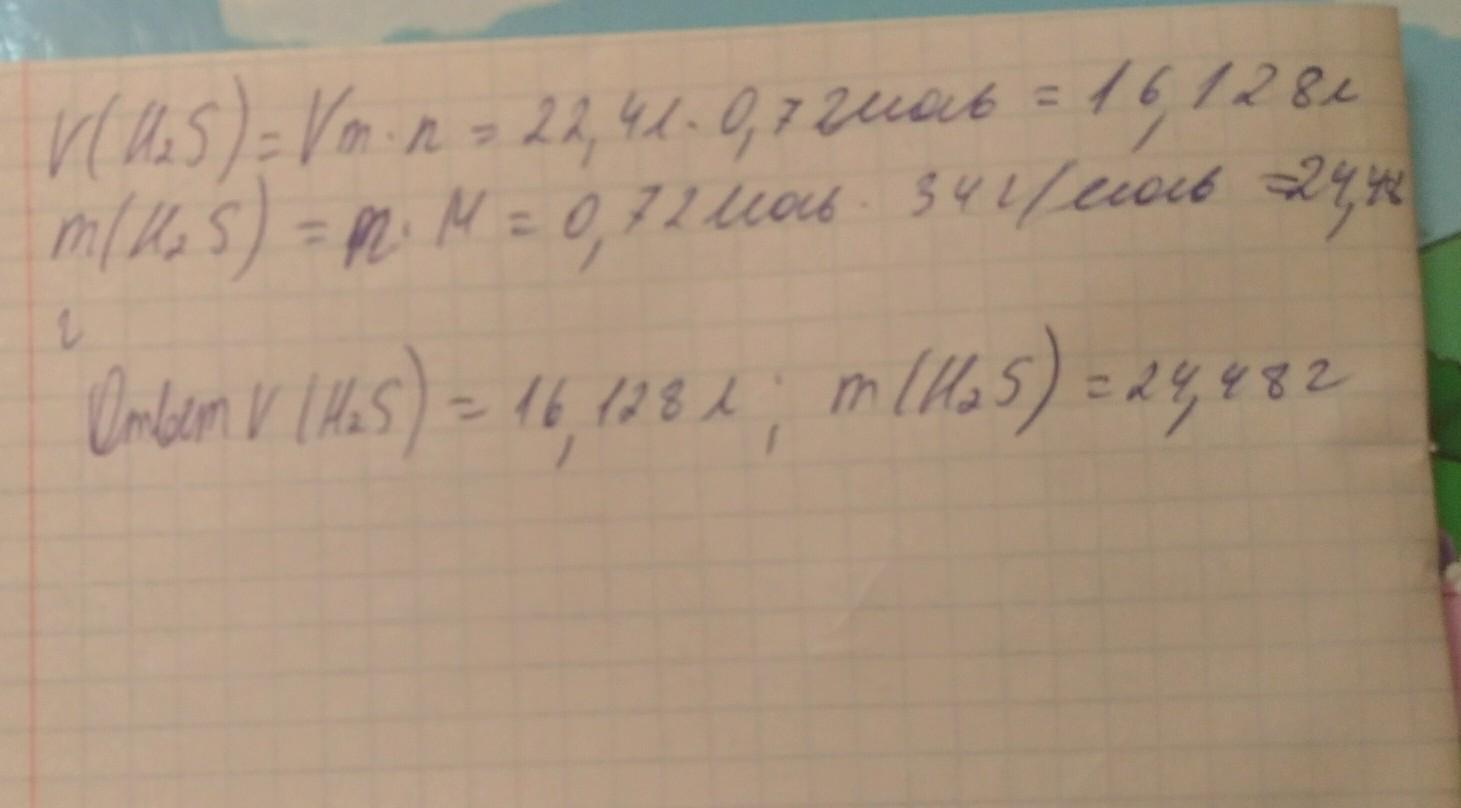 V(H₂S) = Vm · n = 22,4л · 0,72моль = 16,128л
m(H₂S) = n · M = 0,72моль · 34 г/моль = 24,48
г
Ответ V (H₂S) = 16,128 л ; m(H₂S) = 24,48 г